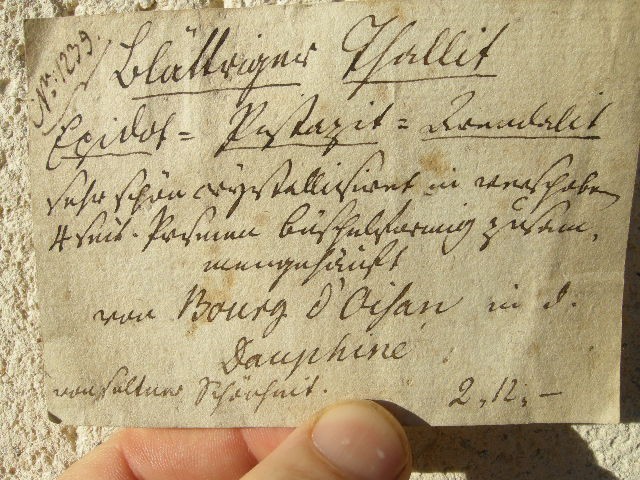 Nr: 1239.
Blättriger Thallit
Epidot = Pistazit = Arendalit
sehr schön crystallisiret in verschoben
4 seit. Prismen büschelförmig zusam,
mengehäuft
von Bourg d'Oisan in d.
Dauphiné
von seltner Schönheit. 2,,12,,—